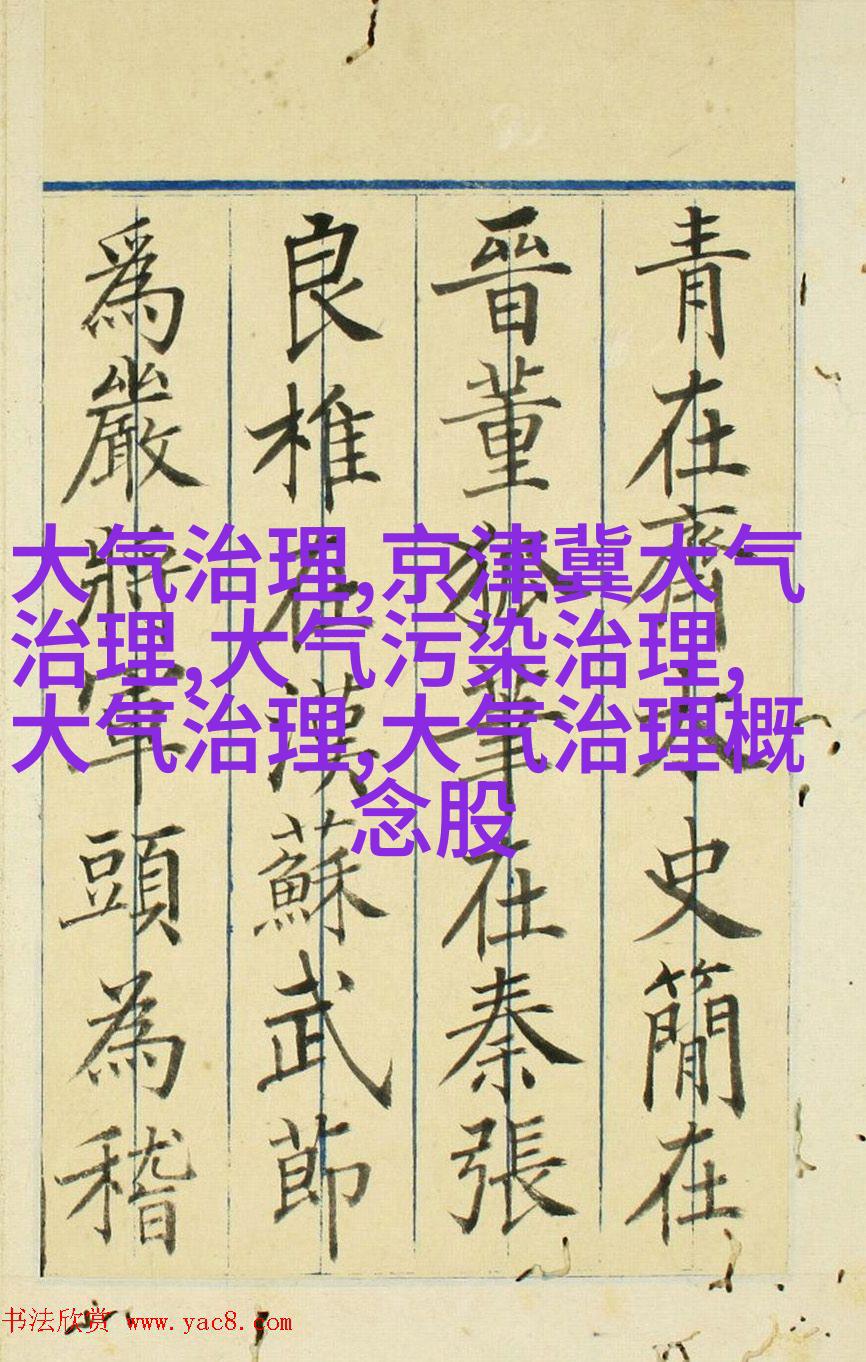 青在齊太史簡在
晉董狐筆在秦張
良椎在漢蘇武節
爲嚴將軍頭為稽
大气治理,京津冀大气
治理,大气污染治理,
大气治理,大气治理概
念股
书法欣赏 www.yac8.com